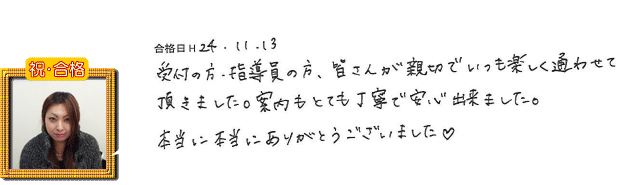 合格日 H 24．11．13
祝・合格
受付の方・指導員の方、皆さんが親切でいつも楽しく通わせて
頂きました。案内もとても丁寧で安心出来ました。
本当に本当にありがとうございました♡